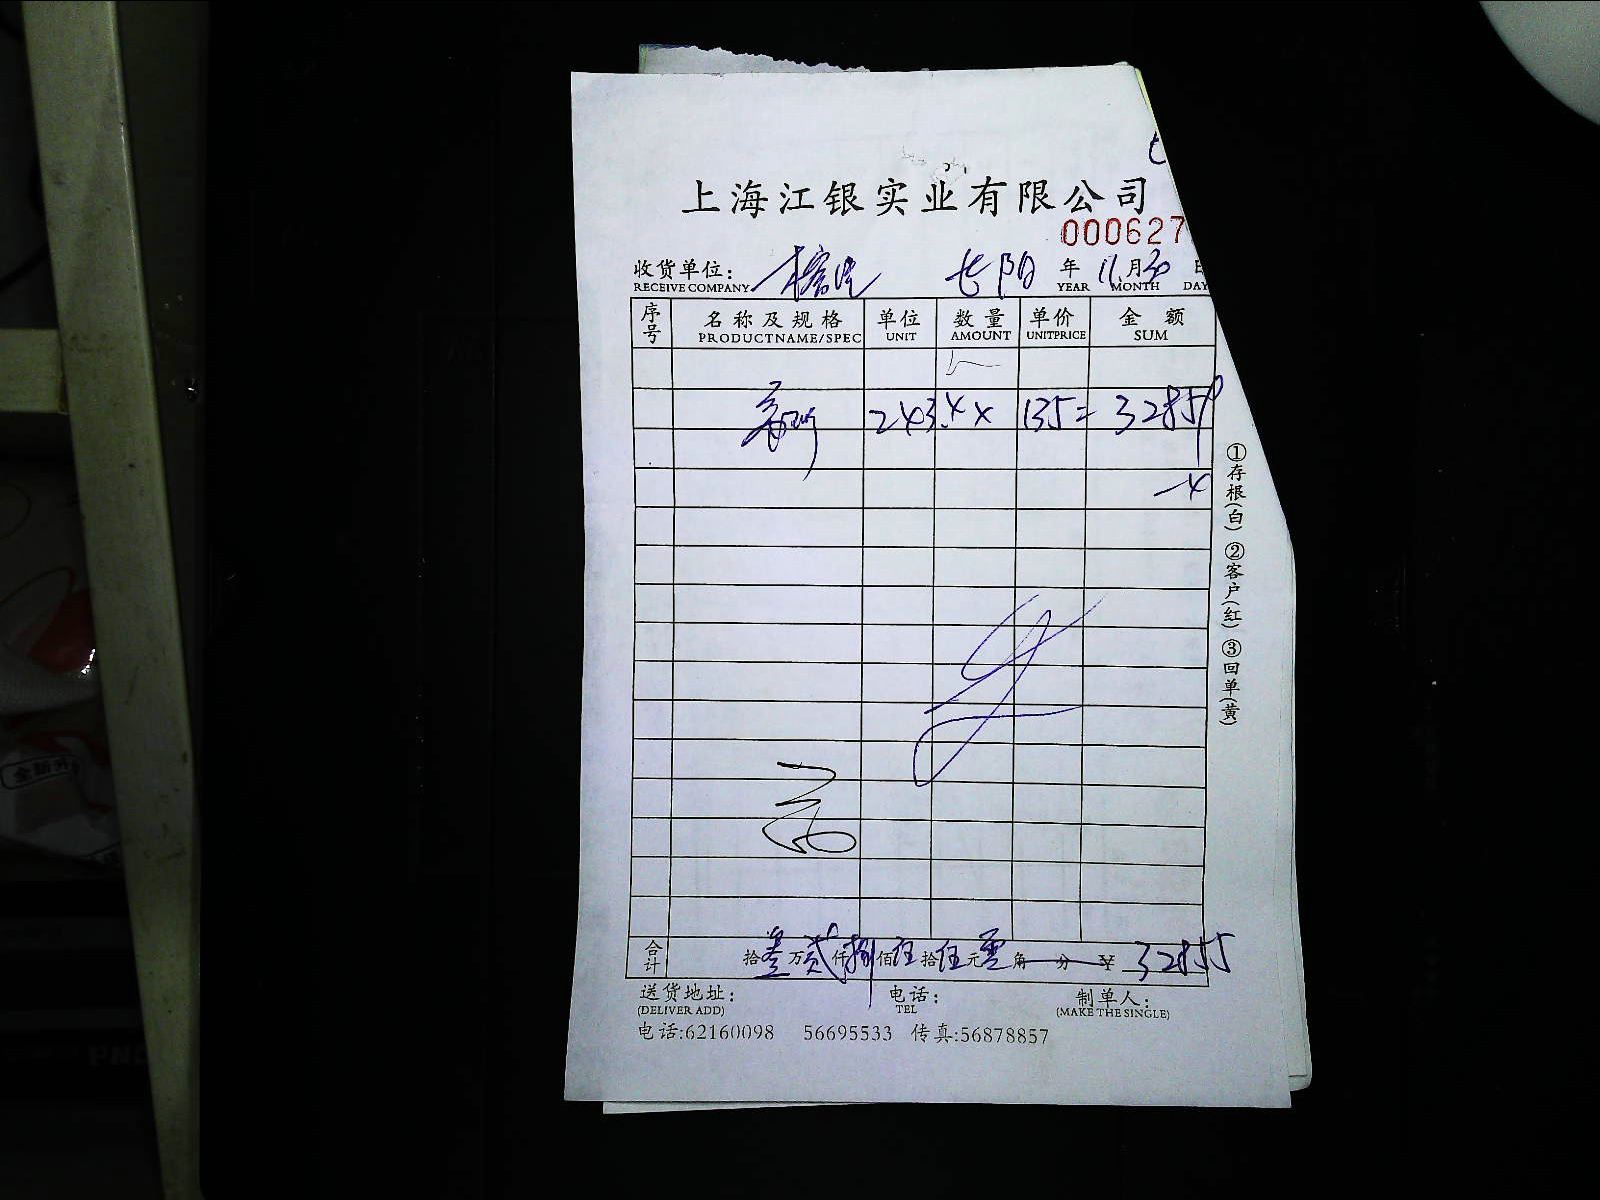 上海江银实业有限公司
000627
收货单位: 长阳 年 11月30日
RECEIVE COMPANY YEAR MONTH DAY
序号 名称及规格 单位 数量 单价 金额
PRODUCTNAME/SPEC UNIT AMOUNT UNITPRICE SUM
243.4 x 135= 32859
-4
合计 拾叁万贰仟捌佰伍拾伍元零角 分 ¥ 32855
送货地址: 电话: 制单人:
(DELIVER ADD) TEL (MAKE THE SINGLE)
电话:62160098 56695533 传真:56878857
①存根(白) ②客户(红) ③回单(黄)